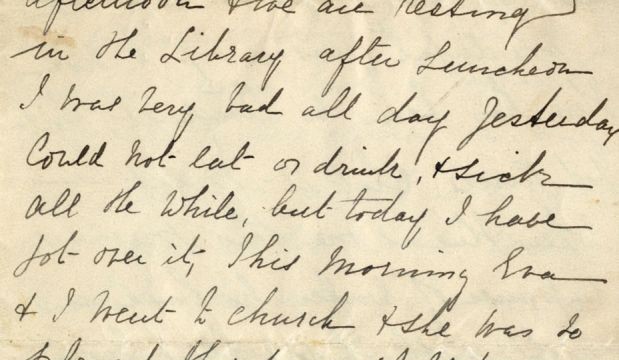 afternoon & we are resting
in the Library after Luncheon
I was very bad all day yesterday
Could not eat or drink, & sick
all the while, but today I have
got over it, This morning Eva
& I went to church & she was so